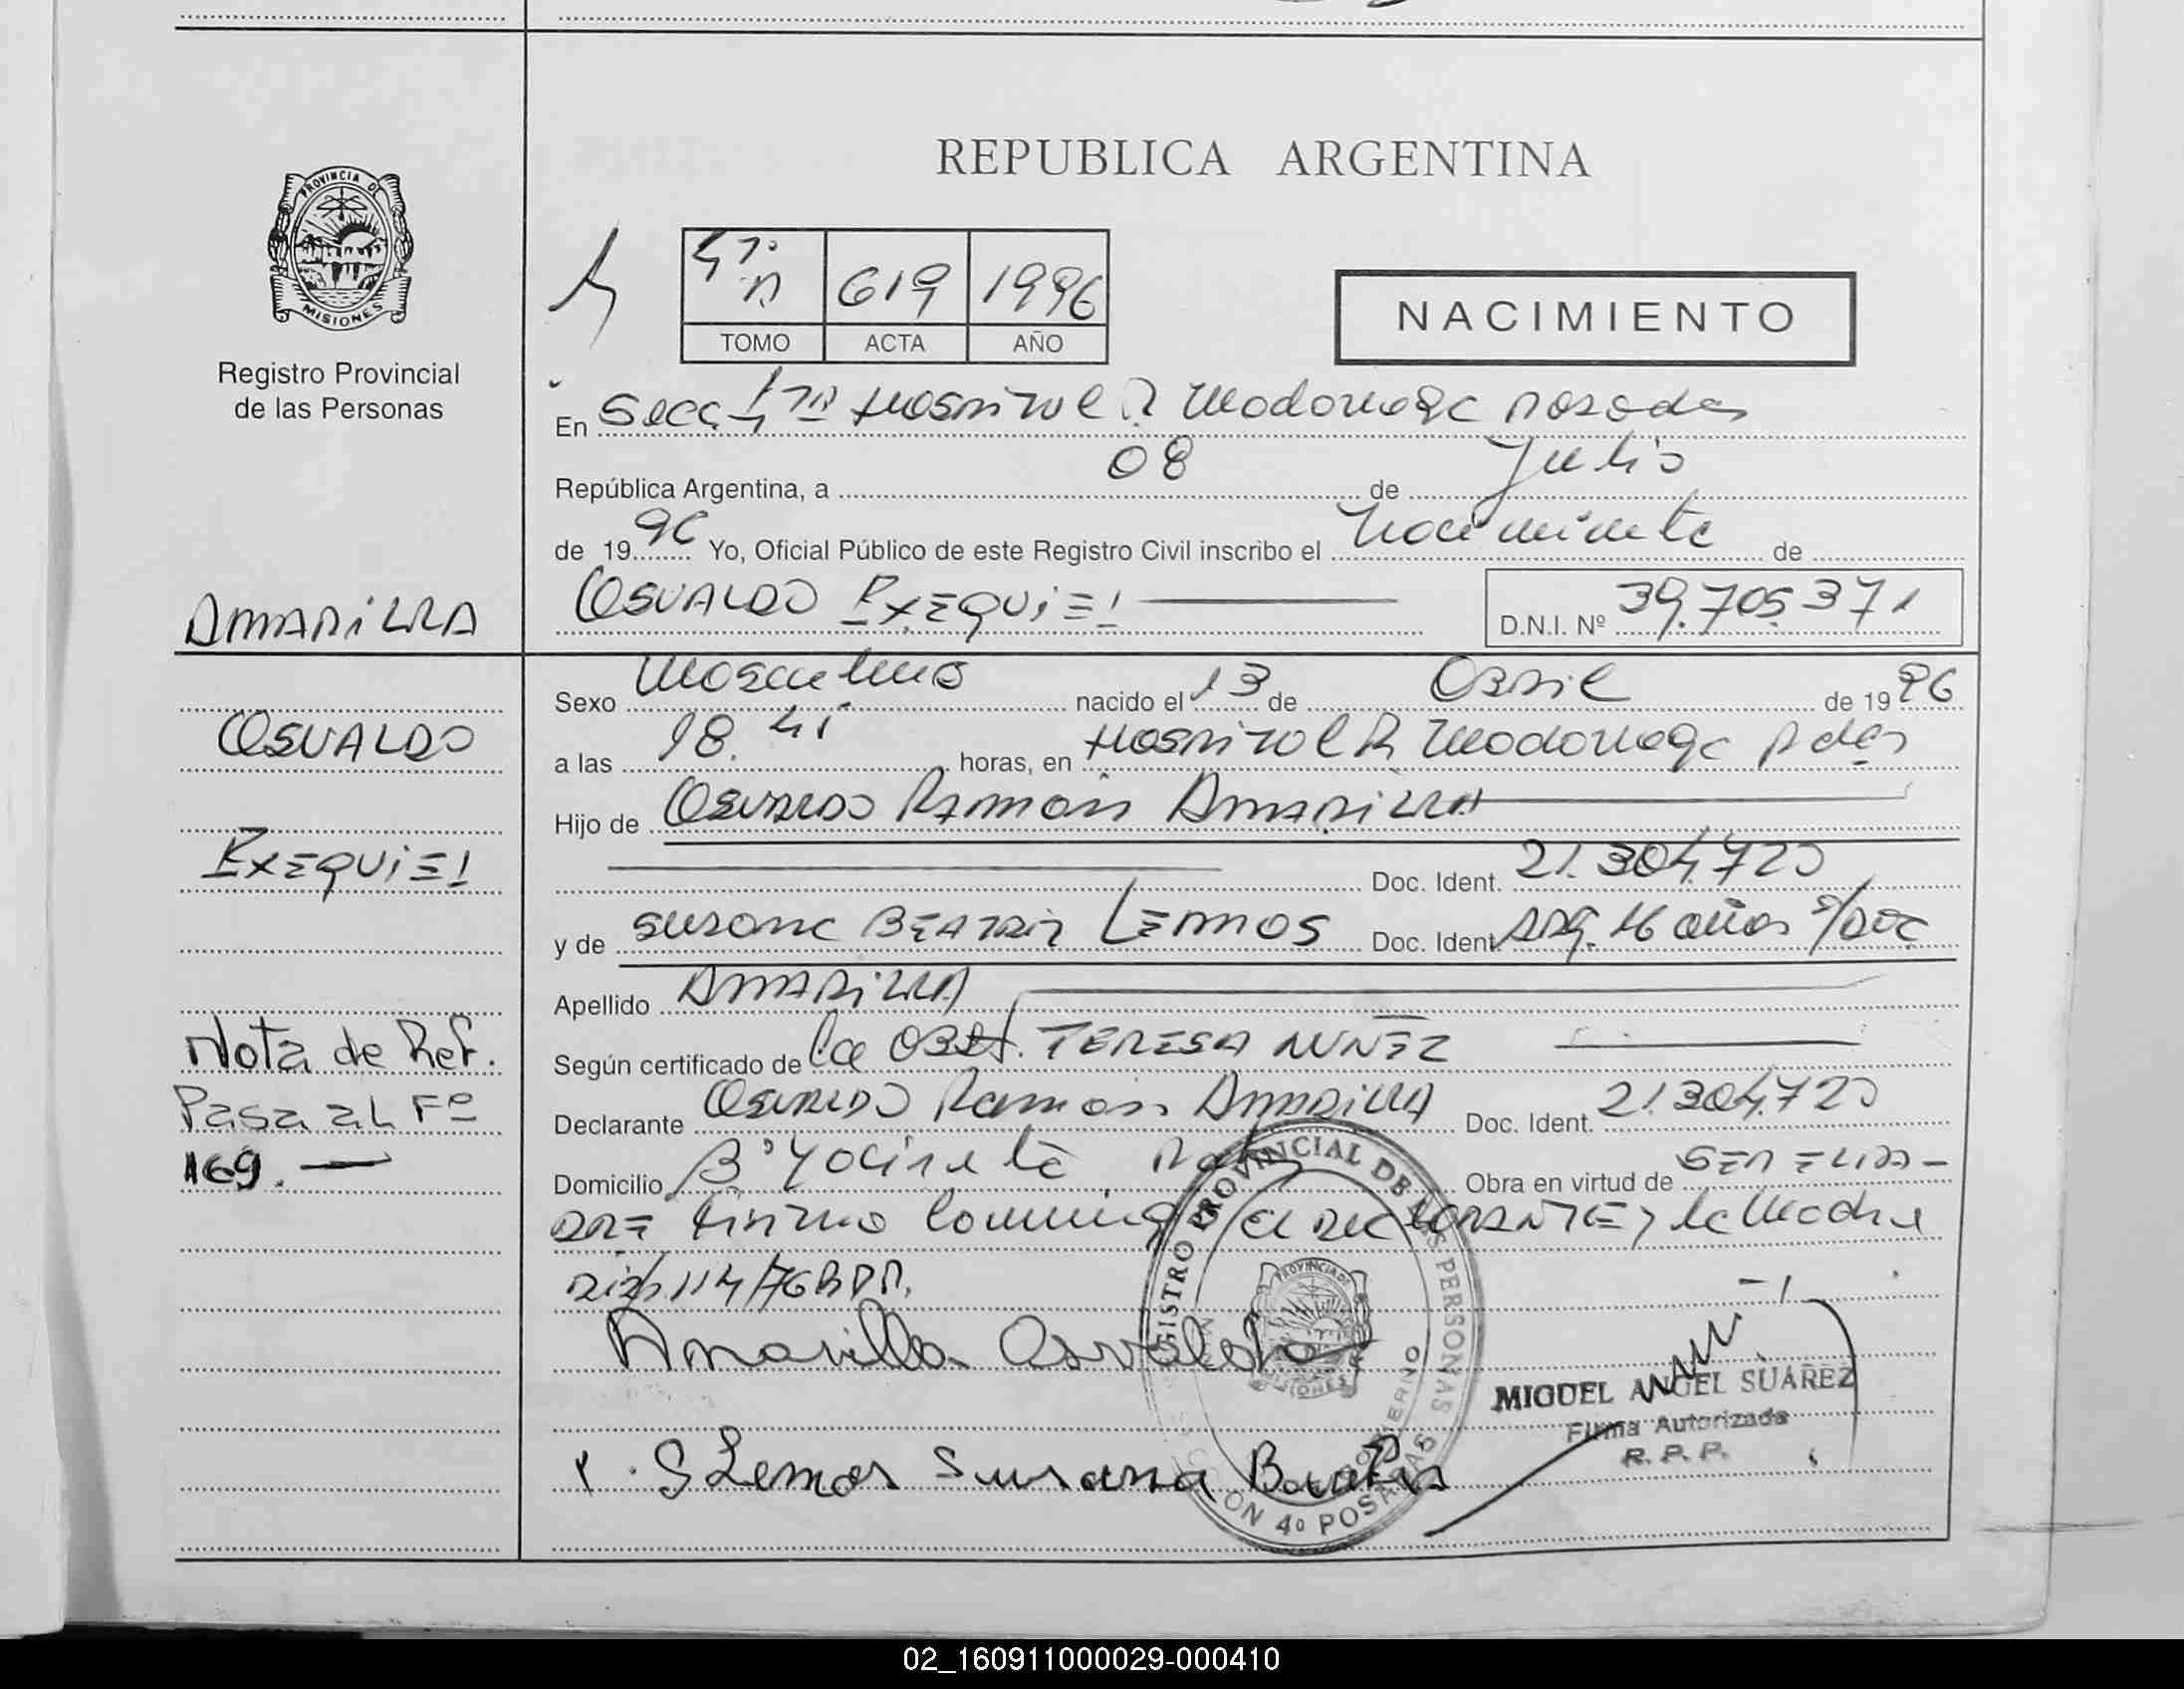 REPUBLICA ARGENTINA
PROVINCIA DE
MISIONES
Registro Provincial
de las Personas
619 1996
TOMO ACTA AÑO
NACIMIENTO
En Secc 4ta Hospital R Madariaga Posadas
República Argentina, a 08 de Julio
de 1996 Yo, Oficial Público de este Registro Civil inscribo el Nacimiento de
OSVALDO EXEQUIEL D.N.I. Nº 39.705.371
AMARILLA
OSVALDO
EXEQUIEL
Nota de Ref.
Pasa al Fº
169.
Sexo Masculino nacido el 13 de Abril de 1996
a las 18. horas, en Hospital R Madariaga Pdas
Hijo de Osvaldo Ramón AMARILLA
Doc. Ident. 21.304.720
y de Susana BEATRIZ LEMOS Doc. Ident ARG. 16 años S/DOC
Apellido AMARILLA
Según certificado de la OBST. TERESA NUÑEZ
Declarante Osvaldo Ramón AMARILLA Doc. Ident. 21.304.720
Domicilio Bº Yacireta Obra en virtud de SER EL PA-
DRE el DECLARANTE y la Madre
114/76
Amarilla Osvaldo
S Lemos Susana Beatriz
REGISTRO PROVINCIAL DE LAS PERSONAS
PROVINCIA DE
MISIONES
SECCION 4º POSADAS
MIGUEL ANGEL SUAREZ
Firma Autorizada
R. P. P.
02_160911000029-000410